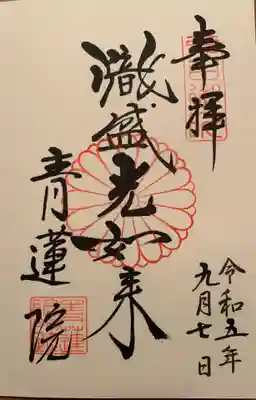 奉拝
令和五年
九月七日
熾盛光如来
青蓮院